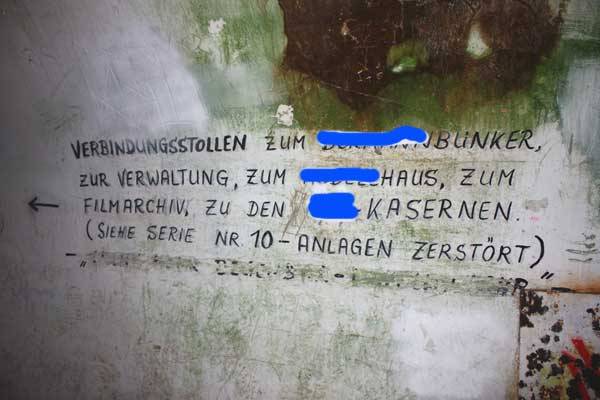 VERBINDUNGSSTOLLEN ZUM BUNKER,
ZUR VERWALTUNG, ZUM HAUS, ZUM
← FILMARCHIV, ZU DEN KASERNEN.
(SIEHE SERIE NR 10-ANLAGEN ZERSTÖRT)